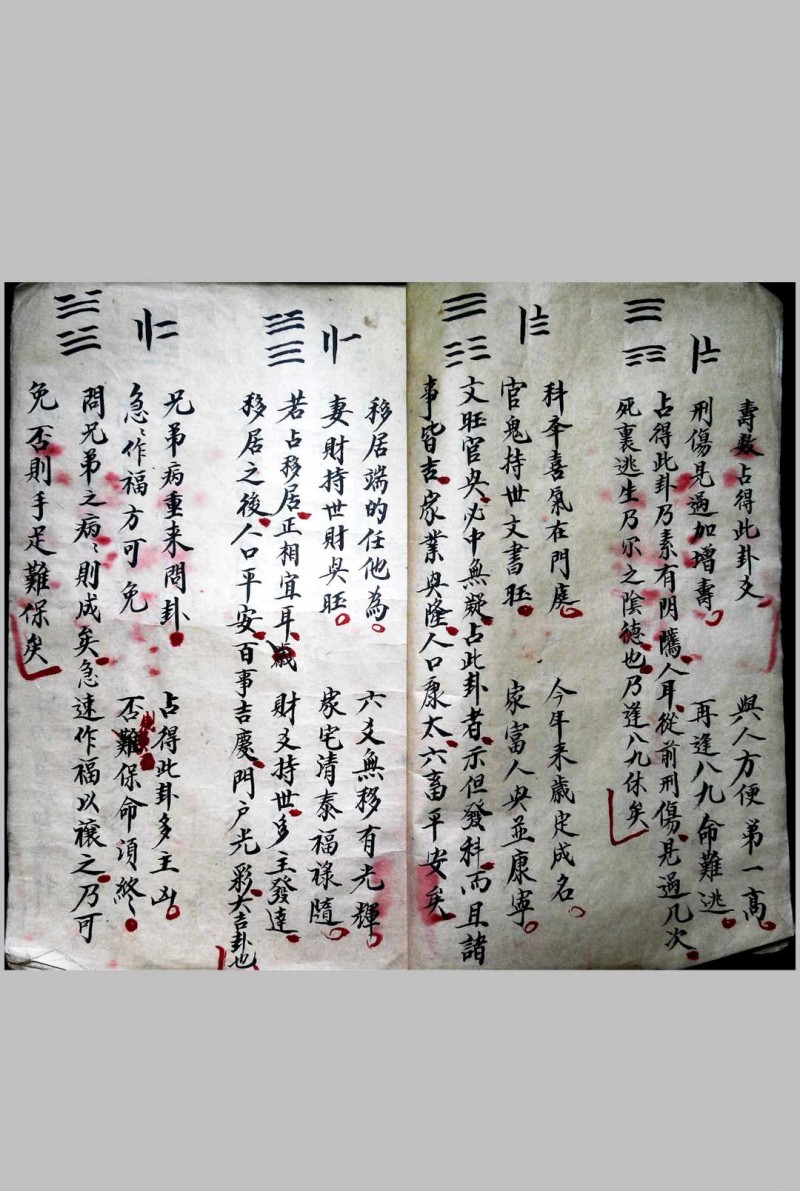 壽數占得此卦爻　與人方便第一高
刑傷見過加增壽　再逢八九命難逃
占得此卦乃素有阴騭人耳從前刑傷見過几次
死裏逃生乃尔之陰德也乃逢八九休矣
科年喜氣在門庭　今年来歲定成名
官鬼持世文書旺　家富人興並康寧
文旺官興必中無疑占此卦者示但發科而且諸
事皆吉家業興隆人口康太六畜平安矣
移居端的任他為　六爻無移有光輝
妻財持世財興旺　家宅清泰福禄隨
若占移居正相宜耳　財爻持世多主發達
移居之後人口平安百事吉慶門户光彩大吉卦也
兄弟病重来問卦　占得此卦多主凶
急〻作福方可免　否難保命須終
問兄弟之病〻則成矣急速作福以禳之乃可
免否則手足難保矣